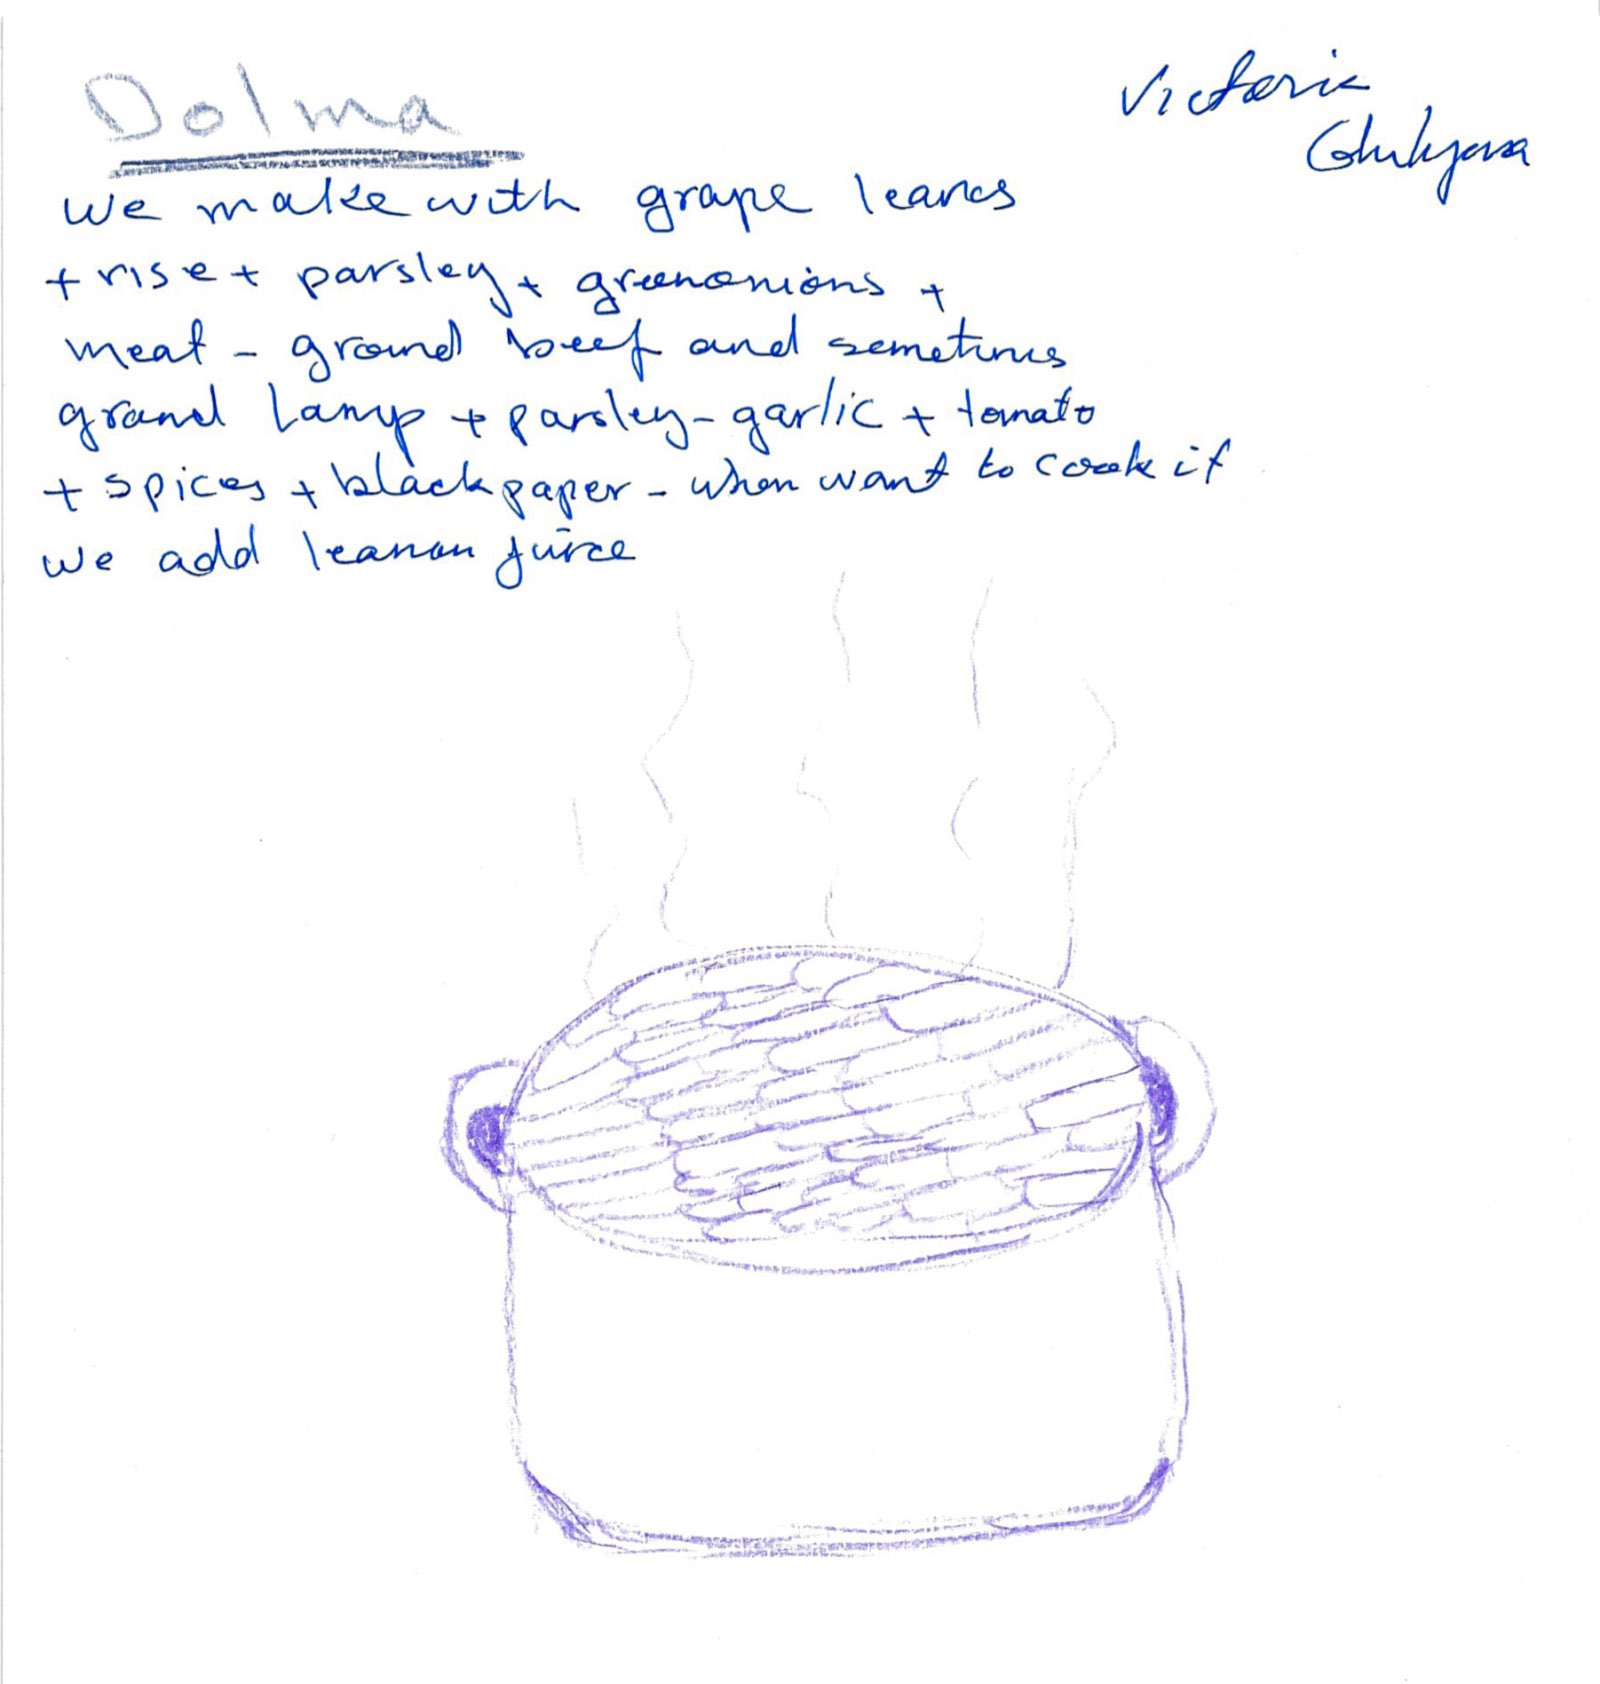 Dolma
Victoria
we make with grape leaves
+ rise + parsley + greenonions +
meat - ground beef and sometimes
grand Lamp + parsley - garlic + tomato
+ spices + black paper - when want to cook it
we add leamon juice